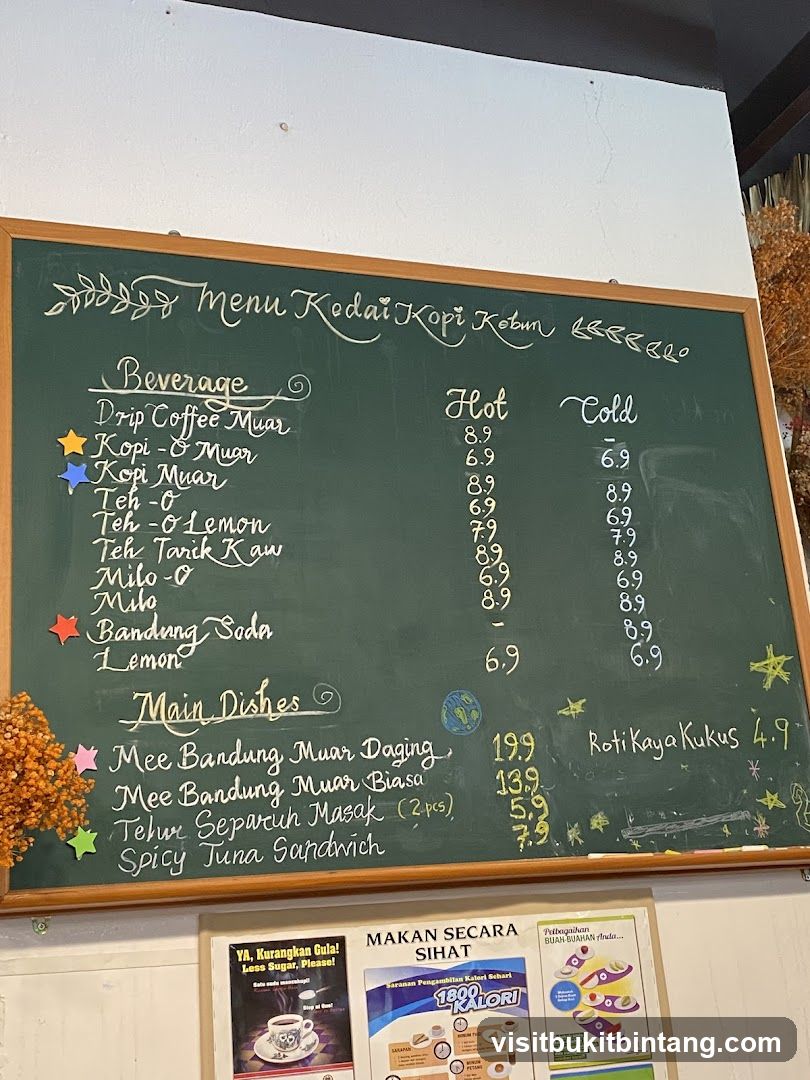 Menu Kedai Kopi Kebun
Beverage Hot Cold
Drip Coffee Muar 8.9 -
Kopi-O Muar 6.9 6.9
Kopi Muar 8.9 8.9
Teh-O 6.9 6.9
Teh-O Lemon 7.9 7.9
Teh Tarik Kaw 8.9 8.9
Milo-O 6.9 6.9
Milo 8.9 8.9
Bandung Soda - 8.9
Lemon 6.9 6.9
Main Dishes
Mee Bandung Muar Daging 19.9 Roti Kaya Kukus 4.9
Mee Bandung Muar Biasa 13.9
Telur Separuh Masak (2 pcs) 5.9
Spicy Tuna Sandwich 7.9
MAKAN SECARA
SIHAT
YA, Kurangkan Gula!
Less Sugar, Please!
Satu sudu mencukupi!
Stop at One!
Saranan Pengambilan Kalori Sehari
1800
KALORI
SARAPAN
Pelbagaikan
BUAH-BUAHAN Anda...
visitbukitbintang.com